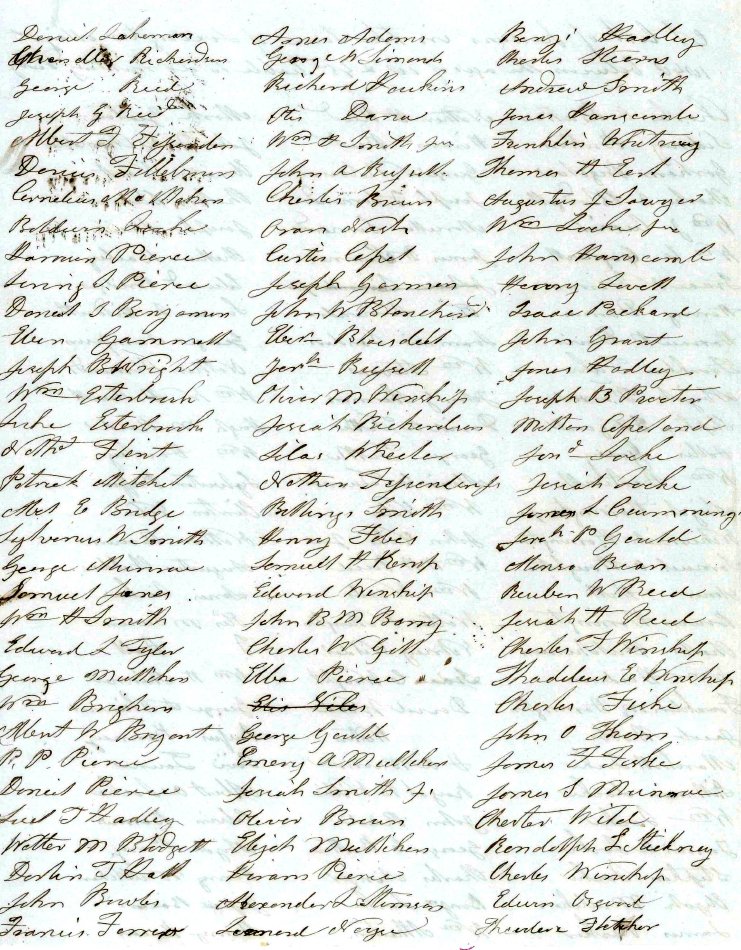 Daniel Lakeman Amos Adams Benj. Hadley
Chandler Richardson George W Simonds Charles Stearns
George Reed Richard Hawkins Andrew Smith
Joseph G Reed Otis Dana Jonas Hanscombe
Albert F Fessenden Wm H Smith Jr Franklin Whitney
Darius Fillebrown John A Russell Thomas H Earl
Cornelius McMahon Charles Brown Augustus J Sawyer
Baldwin Locke Oran Nash Wm Locke Jr
Damon Pierce Curtis Capel John Hanscombe
Loring S. Pierce Joseph Garmon Henry Lovett
Daniel S Benjamin John W Blanchard Isaac Packard
Eben Gammell Eben Blaisdell John Grant
Joseph B Wright Jerh Russell Jonas Hadley
Wm Esterbrook Oliver M Winship Joseph B Procter
Luke Esterbrooks Josiah Richardson Milton Copeland
Nathl Flint Silas Wheeler Jona Locke
Patrick Mitchel Nathan Fessenden Jr Josiah Locke
Abel E Bridge Billings Smith James L Cummings
Sylvanus W Smith Henry Fobes P Gould
George Munroe Samuel H Kemp Alonzo Bean
Samuel Jones Edward Winship Reuben W Reed
Wm H Smith John B M Barry Josiah H Reed
Edward L Tyler Charles W Gill Charles F Winship
George Mulliken Elba Pierce Thaddeus E Winship
Wm Brigham Charles Fiske
Albert W Bryant George Gould John O Thorn
P. P. Pierce Emery A Mulliken James F Fiske
Daniel Pierce Josiah Smith Jr James S Munroe
T Hadley Oliver Brown Charles Wild
Walter M Blodgett Elijah Mulliken Randolph L Stickney
T Hall Hiram Pierce Charles Winship
John Bowles Alexander L Stimson Edwin
Francis Leonard Theodore Fletcher